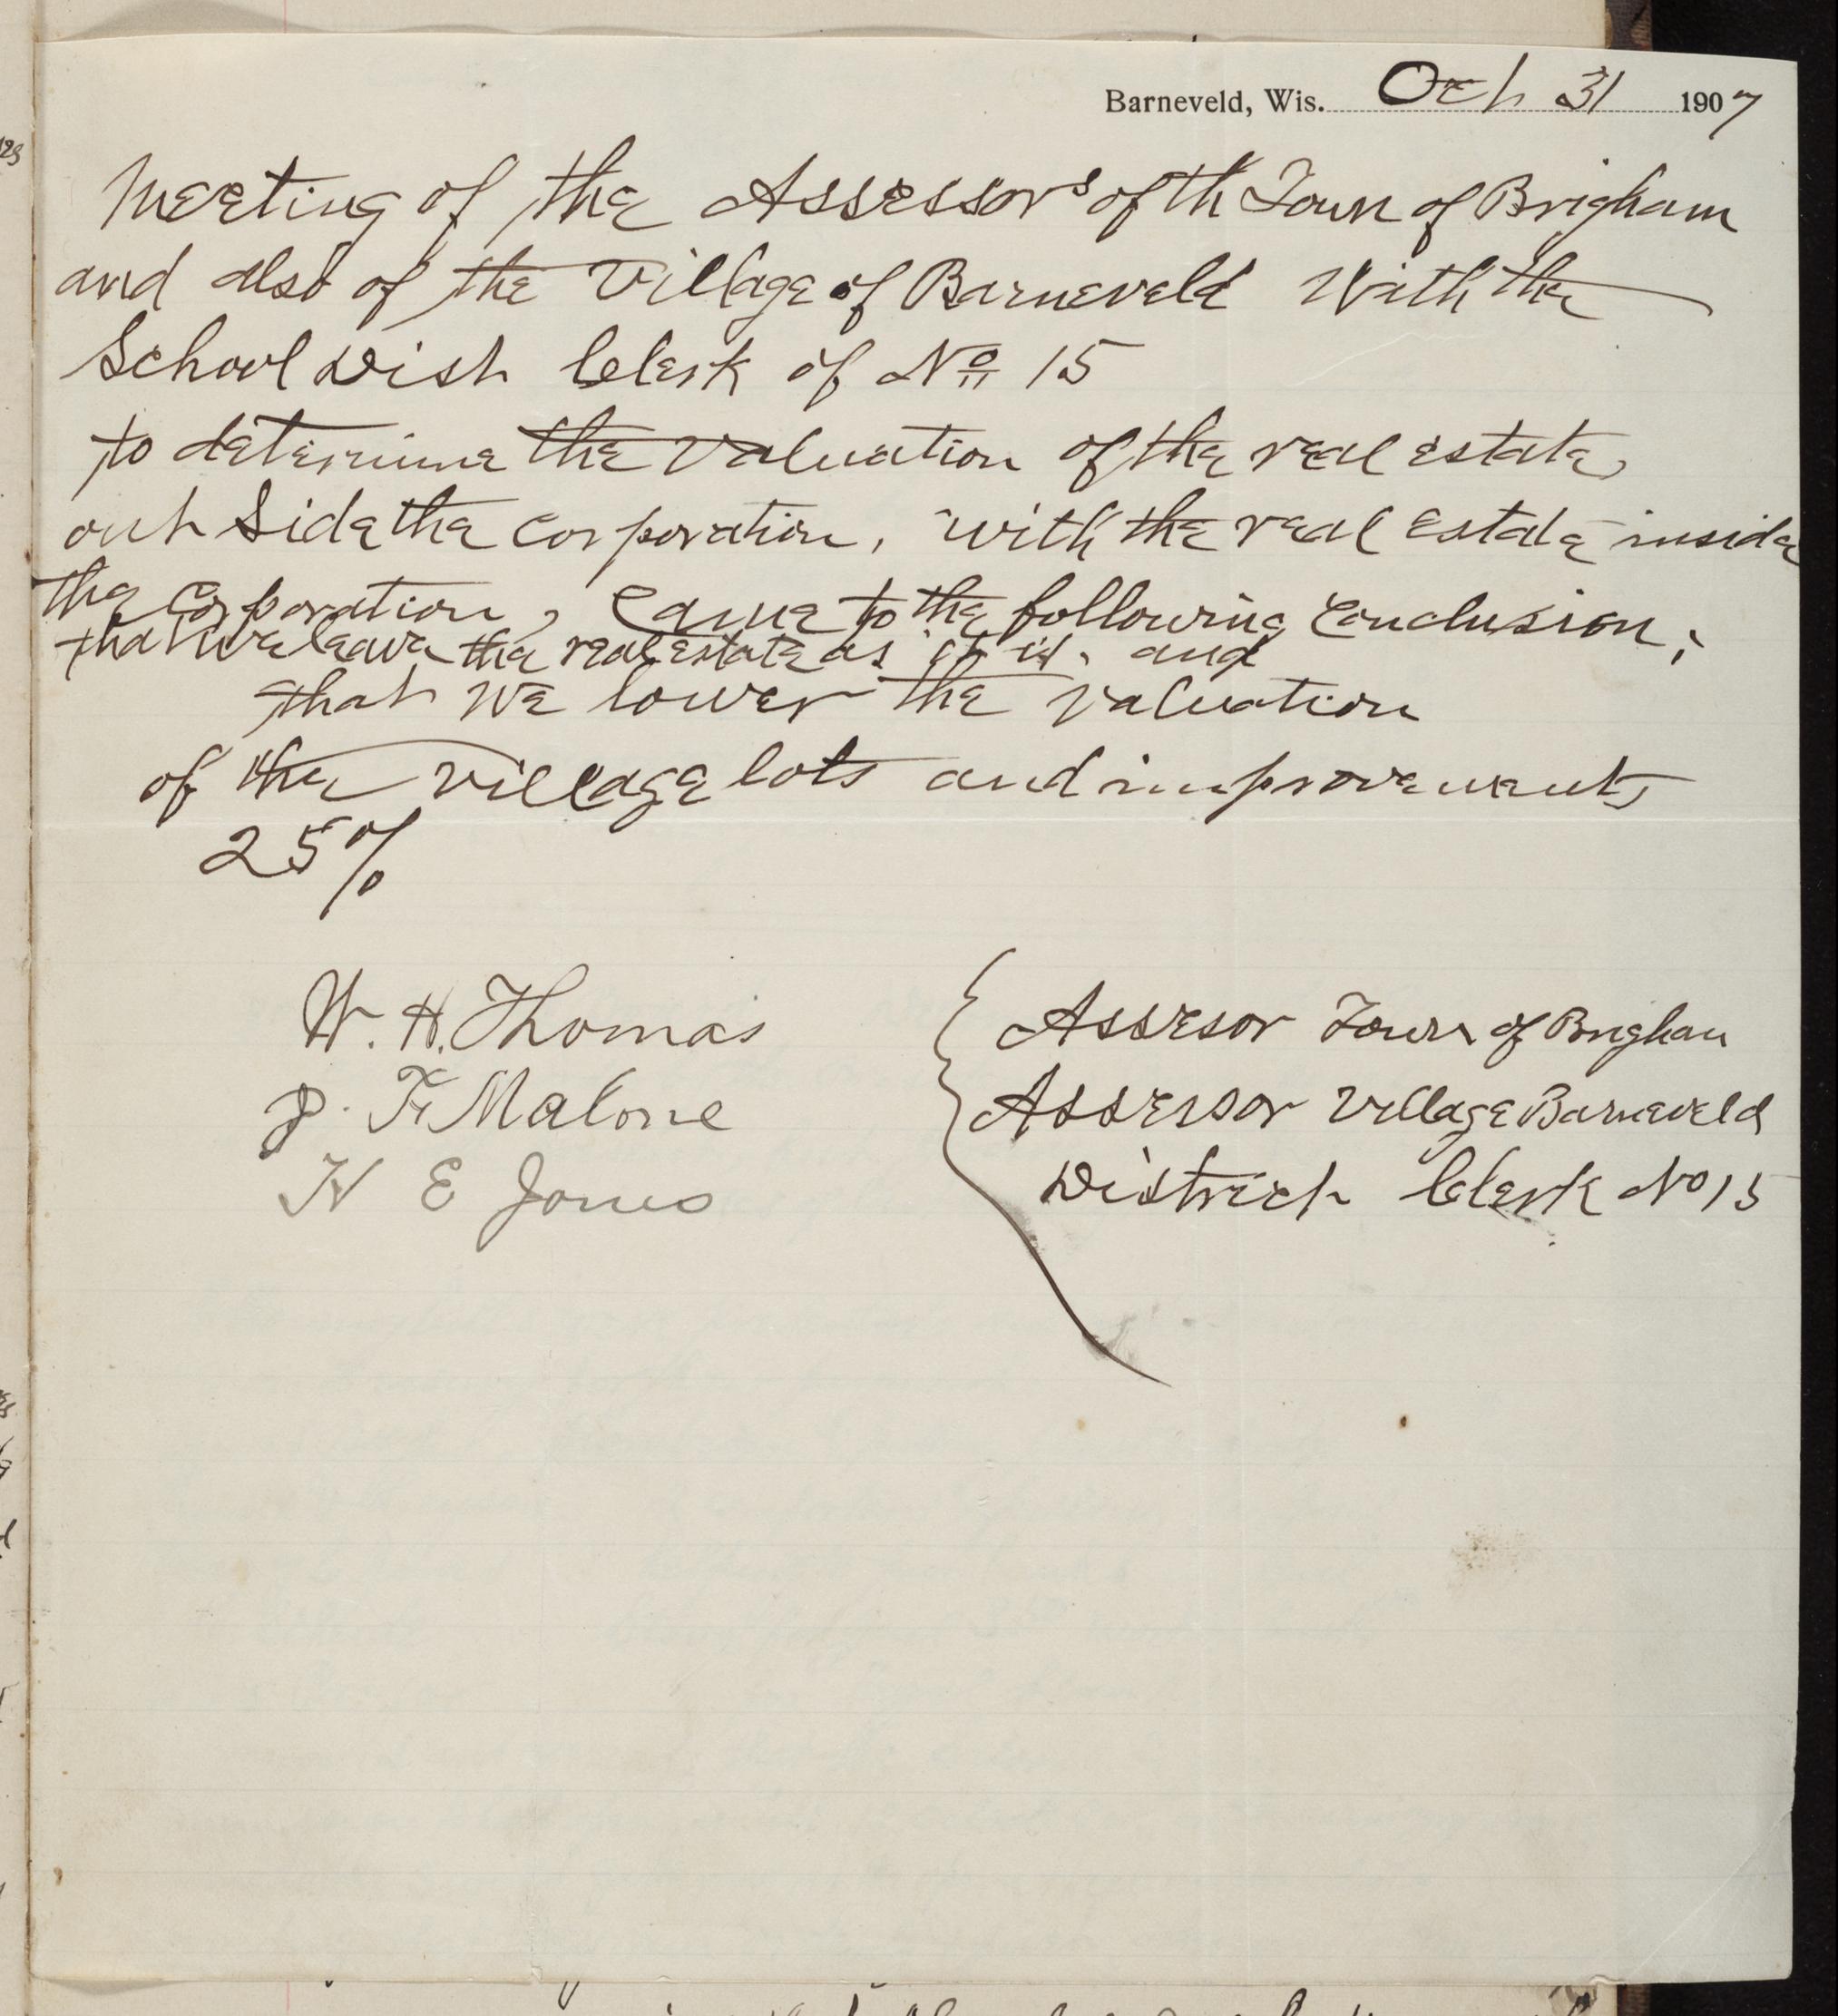 Barneveld, Wis. Oct 31 1907
Meeting of the Assessors of th Town of Brigham
and also of the Village of Barneveld With the
School Dist Clerk of No 15
to determine the Valuation of the real estate
out Side the Corporation, with the real estate inside
the Corporation, Came to the following Conclusion;
that we leave the real estate as it is, and
that We lower the Valuation
of the Village lots and improvements
25%
W. H. Thomas { Assesor Town of Brigham
J. F. Malone Assessor Village Barneveld
H E Jones District Clerk No 15